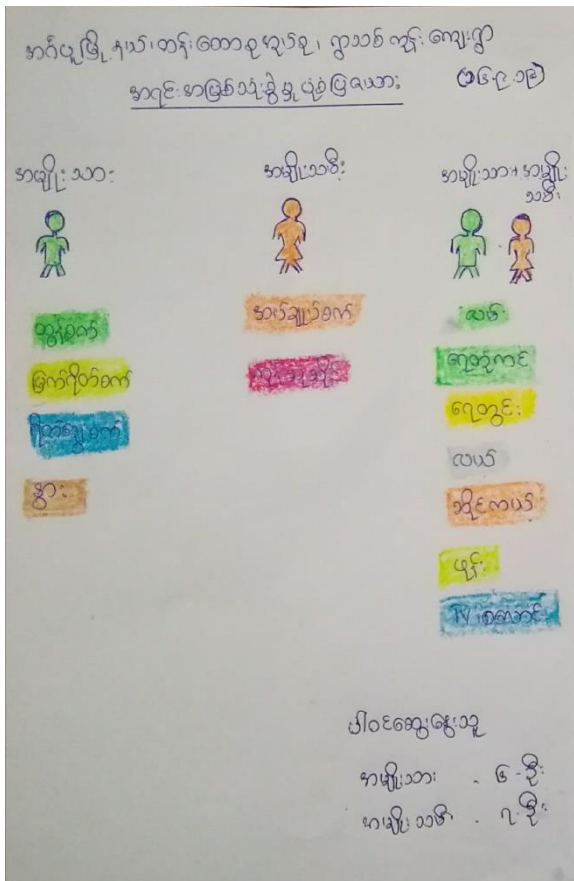 အင်္ဂပူမြို့နယ်၊ တန်းတောစုအုပ်စု၊ ရွာသစ်ကုန်းကျေးရွာ
အရင်းအမြစ်သုံးစွဲမှုပုံစံပြဇယား (၁၆.၉.၁၉)
အမျိုးသား
အမျိုးသမီး
အမျိုးသား+အမျိုး
သမီး
ထွန်စက်
မြက်ရိတ်စက်
ရိတ်ခြွေစက်
နွား
အပ်ချုပ်စက်
လမ်း
ရေတုံကင်
ရေတွင်း
လယ်
ဆိုင်ကယ်
ဖုန်း
TV စလောင်း
ပါဝင်ဆွေးနွေးသူ
အမျိုးသား - ၆-ဦး
အမျိုးသမီး - ၇-ဦး